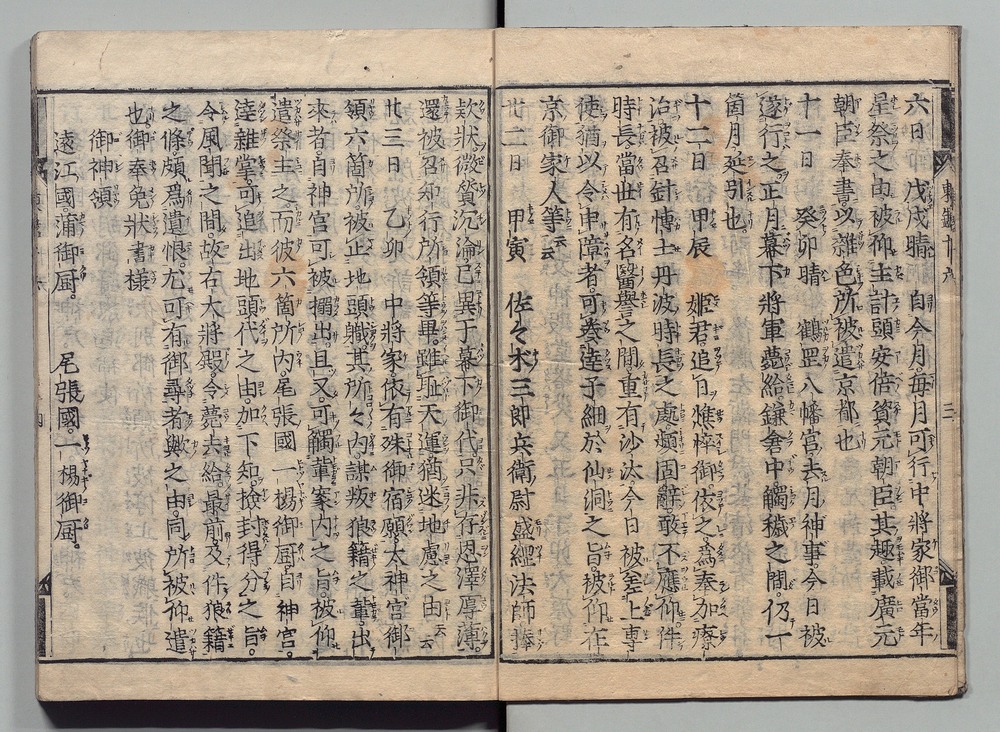 六日 戊戌晴 自今月。毎月可行中將家御當年
星祭之由被仰主計頭安倍資元朝臣其趣載廣元
朝臣奉書以雜色所被遣京都也
十一日 癸卯晴 鶴罡八幡宮去月神事。今日被
遂行之正月幕下將軍薨給鎌倉中觸穢之間。仍一
箇月延引也。
十二日 甲辰 姬君。追日憔悴御依之。爲奉加療
治被召針博士丹波時長之處頻固辭敢不應仰。件
時長當世有名醫譽之間重有沙汰今日被差上專
使猶以令申障者。可奏達子細於仙洞之旨被仰在
京御家人等云云
廿二日 甲寅 佐々木三郎兵衛尉盛經法師捧
欵狀微質沉淪已異于幕下御代只非存恩澤厚薄。
還被召知行所領等畢雖恥天運猶迷地慮之由云云
廿三日 乙卯 中將家依有殊御宿願太神宮御
領六箇所被止地頭軄其所々內謀叛狼籍之輩出
來者自神宮可被搦出且又可觸案內之旨。被仰
遣祭主之而彼六箇所內。尾張國一楊御厨自神宮。
達雜掌可追出地頭代之由。加下知撿封得分之旨。
令風聞之間故右大將殿。令薨去給最前及件狼籍
之條。頗爲遺恨。尤可有御尋者歟之由同所被仰遣
也御奉免狀書樣
御神領
遠江國蒲御厨。 尾張國一楊御厨。
東鑑十六
三